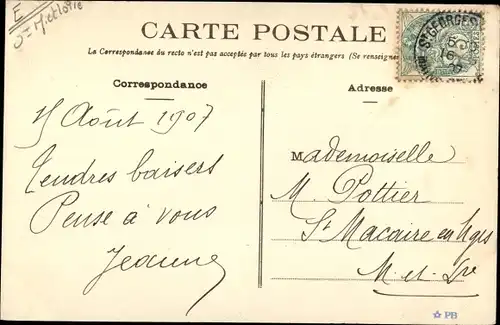 CARTE POSTALE
La Correspondance du recto n'est pas acceptée par tous les pays étrangers (Se renseigner
Correspondance
Adresse
Août 1907
Tendres baisers
Pense à vous
Jeanne
Mademoiselle
M. Pottier
St Macaire en Mges
M. et Lre
S-GEORGES
PB
E